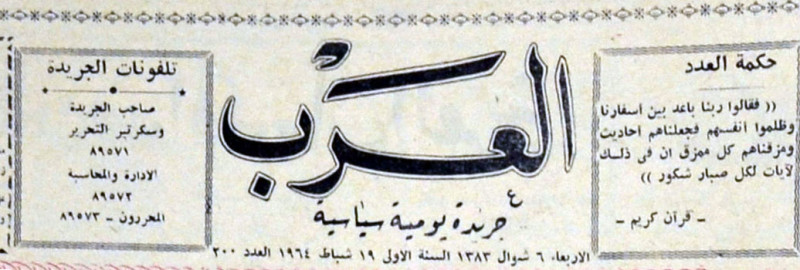 حكمة العدد
(( فقالوا ربنا باعد بين أسفارنا
وظلموا انفسهم فجعلناهم أحاديث
ومزقناهم كل ممزق ان في ذلك
لآيات لكل صبار شكور ))
ـ قرآن كريم ـ
العرب
جريدة يومية سياسية
الاربعاء ٦ شوال ١٣٨٣ السنة الاولى ١٩ شباط ١٩٦٤ العدد ٢٠٠
تلفونات الجريدة
صاحب الجريدة
وسكرتير التحرير
٨٩٥٧١
الادارة والمحاسبة
٨٩٥٧٢
المحررون ـ ٨٩٥٧٣